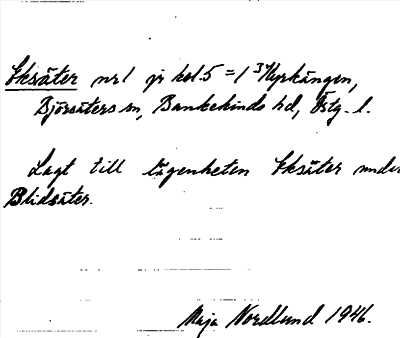 Eksäter nr1 jr kol.5 = 1 3 Kyrkängen,
Björsäters sn, Bankekinds hd, Östg. l.
Lagt till lägenheten Eksäter under
Blidsäter.
Maja Nordlund 1946.